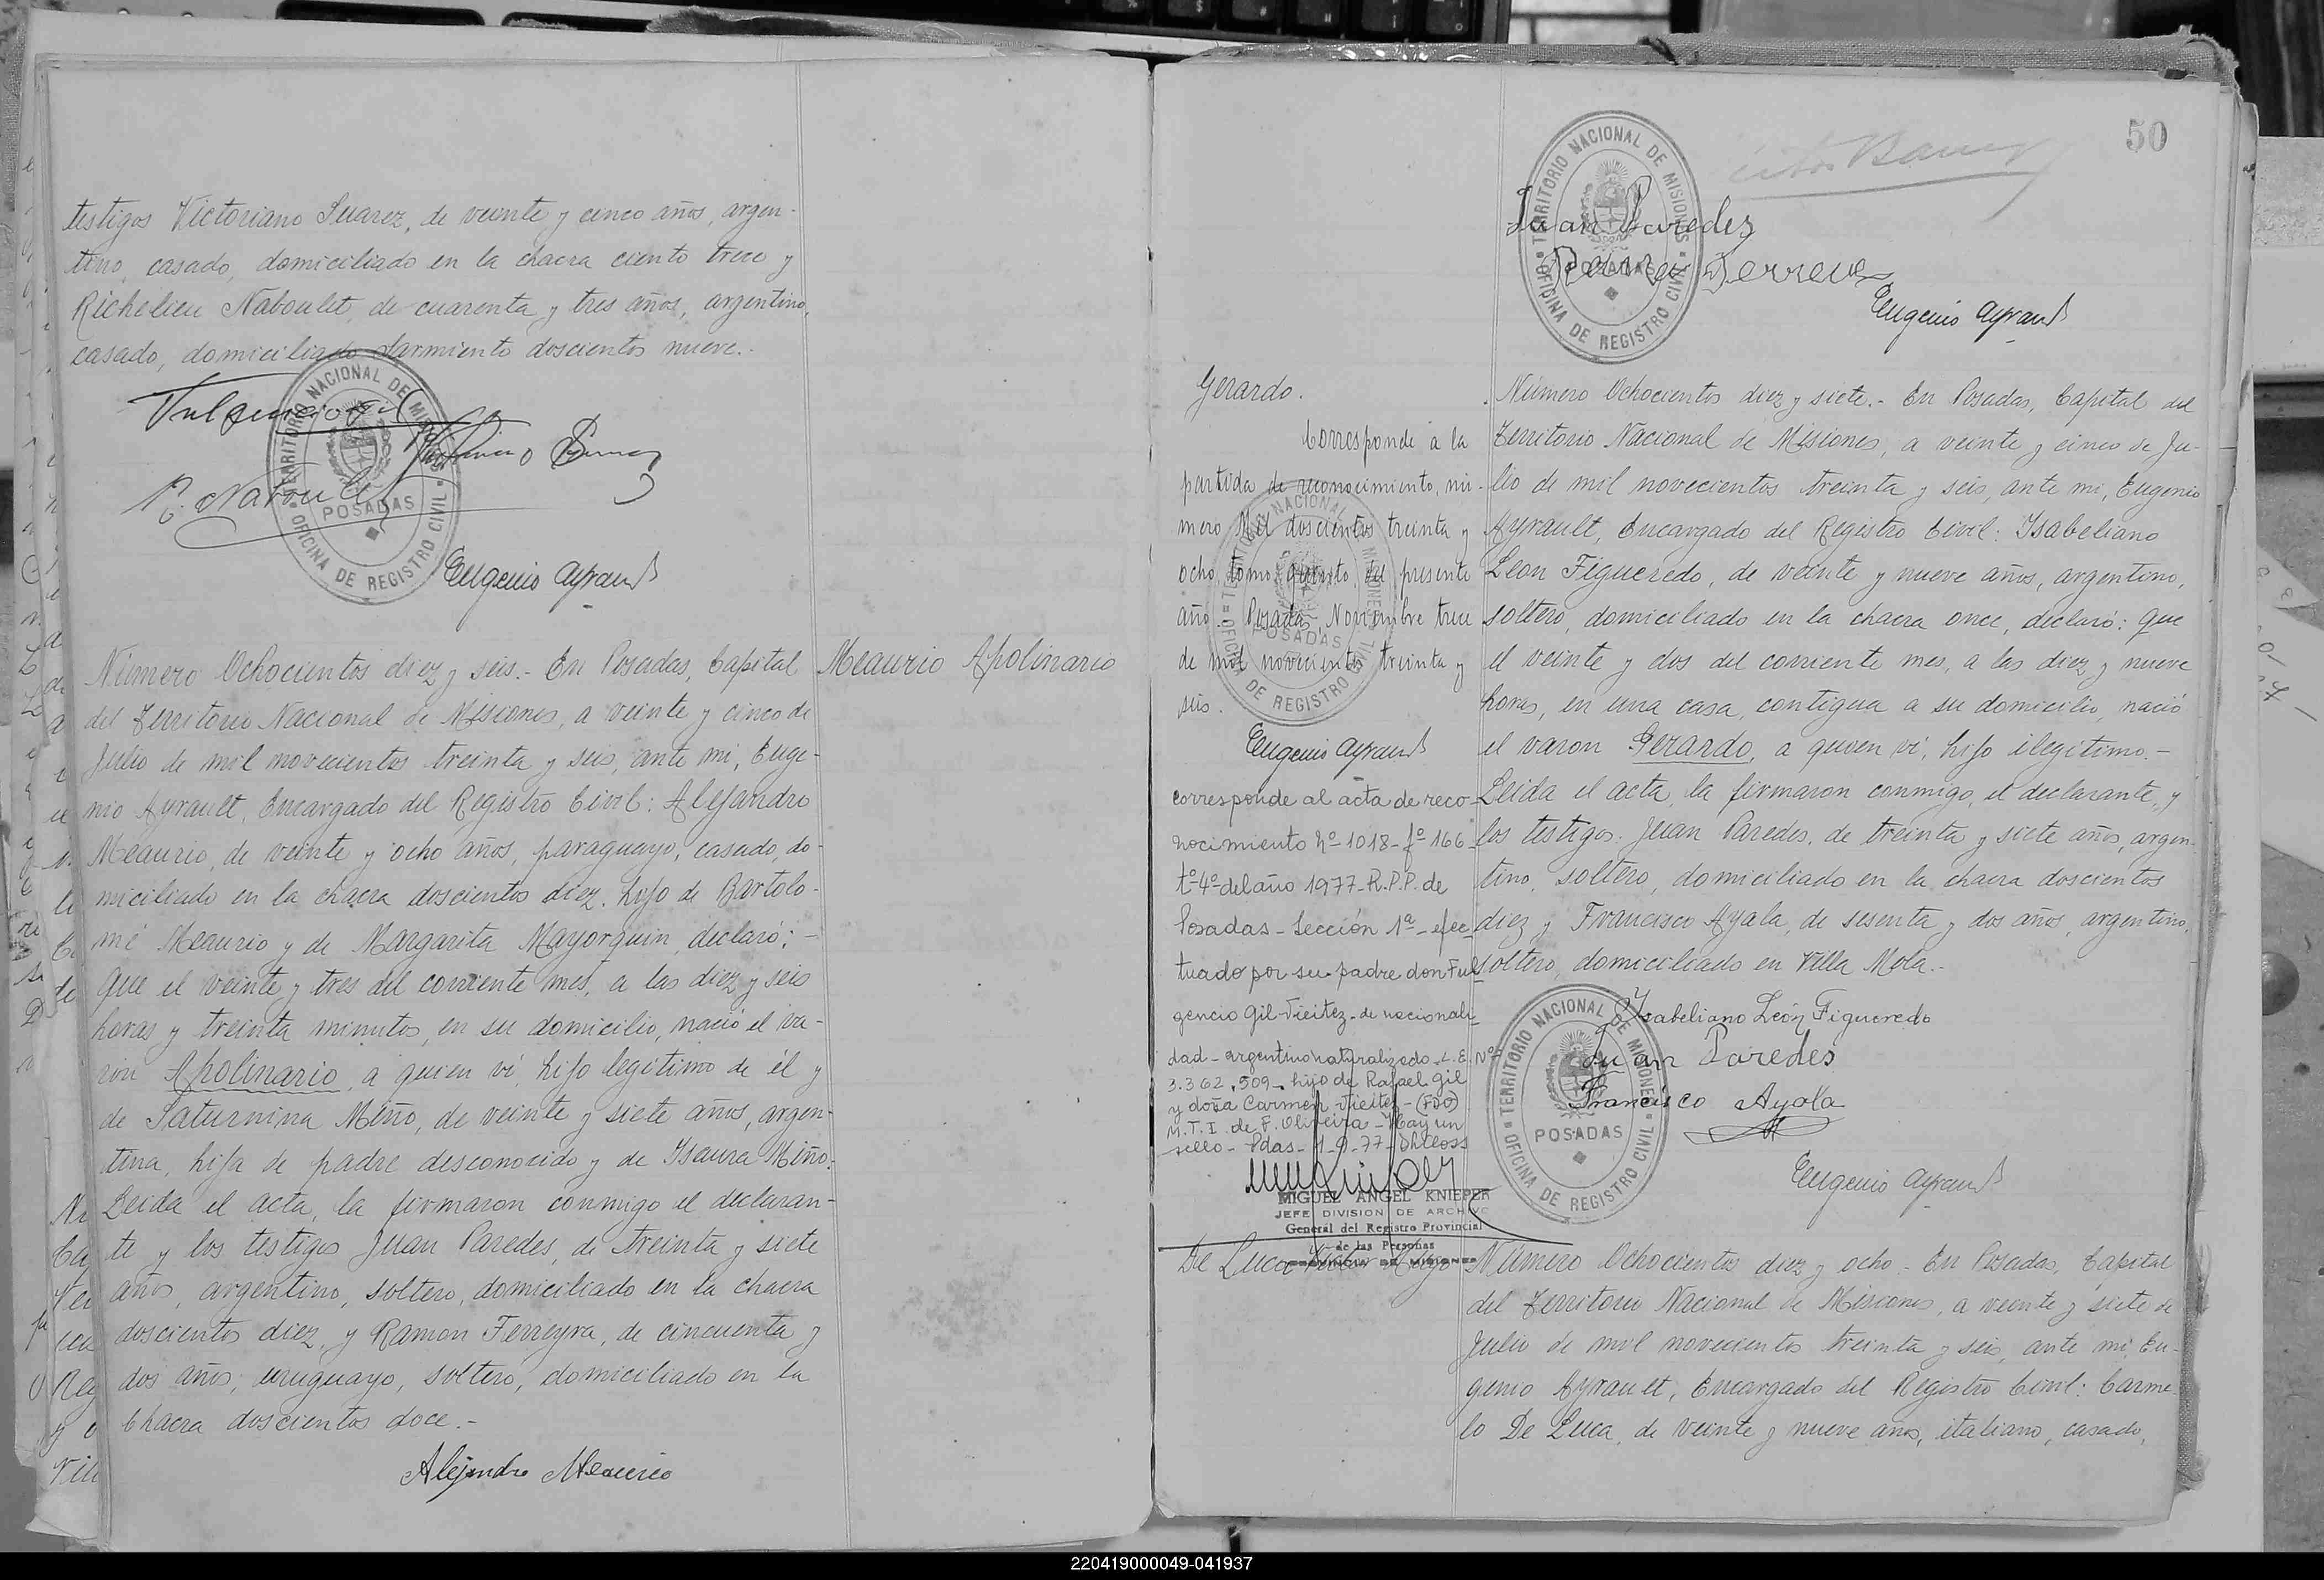 testigos Victoriano Suarez, de veinte y cinco años, argen-
tino, casado, domiciliado en la chacra ciento trece y
Richelieu Naboulet, de cuarenta y tres años, argentino,
casado, domiciliado Sarmiento doscientos nueve.-
TERRITORIO NACIONAL DE MISIONES
POSADAS
OFICINA DE REGISTRO CIVIL
Fulgencio Gil
R. Naboulet
Eugenio Ayrault
Meaurio Apolinario
Número Ochocientos diez y seis.- En Posadas, Capital
del Territorio Nacional de Misiones, a veinte y cinco de
Julio de mil novecientos treinta y seis, ante mi, Euge-
nio Ayrault, Encargado del Registro Civil: Alejandro
Meaurio, de veinte y ocho años, paraguayo, casado, do-
miciliado en la chacra doscientos diez, hijo de Bartolo-
mé Meaurio y de Margarita Mayorquin, declaró:-
Que el veinte y tres del corriente mes, a las diez y seis
horas y treinta minutos, en su domicilio, nació el va-
rón Apolinario, a quien ví, hijo legítimo de él y
de Saturnina Miño, de veinte y siete años, argen-
tina, hija de padre desconocido y de Isaura Miño.-
Leida el acta, la firmaron conmigo el declaran-
te y los testigos Juan Paredes, de treinta y siete
años, argentino, soltero, domiciliado en la chacra
doscientos diez, y Ramon Ferreyra, de cincuenta y
dos años, uruguayo, soltero, domiciliado en la
Chacra doscientos doce.-
Alejandro Meaurio
50
TERRITORIO NACIONAL DE MISIONES
POSADAS
OFICINA DE REGISTRO CIVIL
Juan Paredes
Eugenio Ayrault
Gerardo.
Corresponde a la
partida de reconocimiento, nú-
mero Mil doscientos treinta y
ocho, tomo quinto, del presente
año.- Posadas, Noviembre trece
de mil novecientos treinta y
seis.
TERRITORIO NACIONAL DE MISIONES
POSADAS
OFICINA DE REGISTRO CIVIL
Eugenio Ayrault
corresponde al acta de reco-
nocimiento Nº 1018-fº 166-
tº-4º-del año 1977-R.P.P. de
Posadas-Sección 1ª-efec-
tuado por su padre don Ful-
gencio Gil-Vieitez-de nacionali-
dad-argentino naturalizado-L.E. Nº
3.362.509-hijo de Rafael Gil
y doña Carmen Vieitez-(FDO)
M.T.I. de F. Oliveira-Hay un
sello-Pdas-1-9-77-
MIGUEL ANGEL KNIEPER
JEFE DIVISION DE ARCHIVO
General del Registro Provincial
de las Personas
PROVINCIA DE MISIONES
Número Ochocientos diez y siete.- En Posadas, Capital del
Territorio Nacional de Misiones, a veinte y cinco de Ju-
lio de mil novecientos treinta y seis, ante mi, Eugenio
Ayrault, Encargado del Registro Civil: Isabeliano
Leon Figueredo, de veinte y nueve años, argentino,
soltero, domiciliado en la chacra once, declaró: que
el veinte y dos del corriente mes, a las diez y nueve
horas, en una casa, contigua a su domicilio, nació
el varon Gerardo, a quien ví, hijo ilegítimo.-
Leida el acta, la firmaron conmigo, el declarante, y
los testigos: Juan Paredes, de treinta y siete años, argen-
tino, soltero, domiciliado en la chacra doscientos
diez y Francisco Ayala, de sesenta y dos años, argentino,
soltero, domiciliado en Villa Mola.-
TERRITORIO NACIONAL DE MISIONES
POSADAS
OFICINA DE REGISTRO CIVIL
Ysabeliano León Figueredo
Juan Paredes
Francisco Ayala
Eugenio Ayrault
De Luca
Número Ochocientos diez y ocho.- En Posadas, Capital
del Territorio Nacional de Misiones, a veinte y siete de
Julio de mil novecientos treinta y seis, ante mi, Eu-
genio Ayrault, Encargado del Registro Civil: Carme-
lo De Luca, de veinte y nueve años, italiano, casado,
220419000049-041937